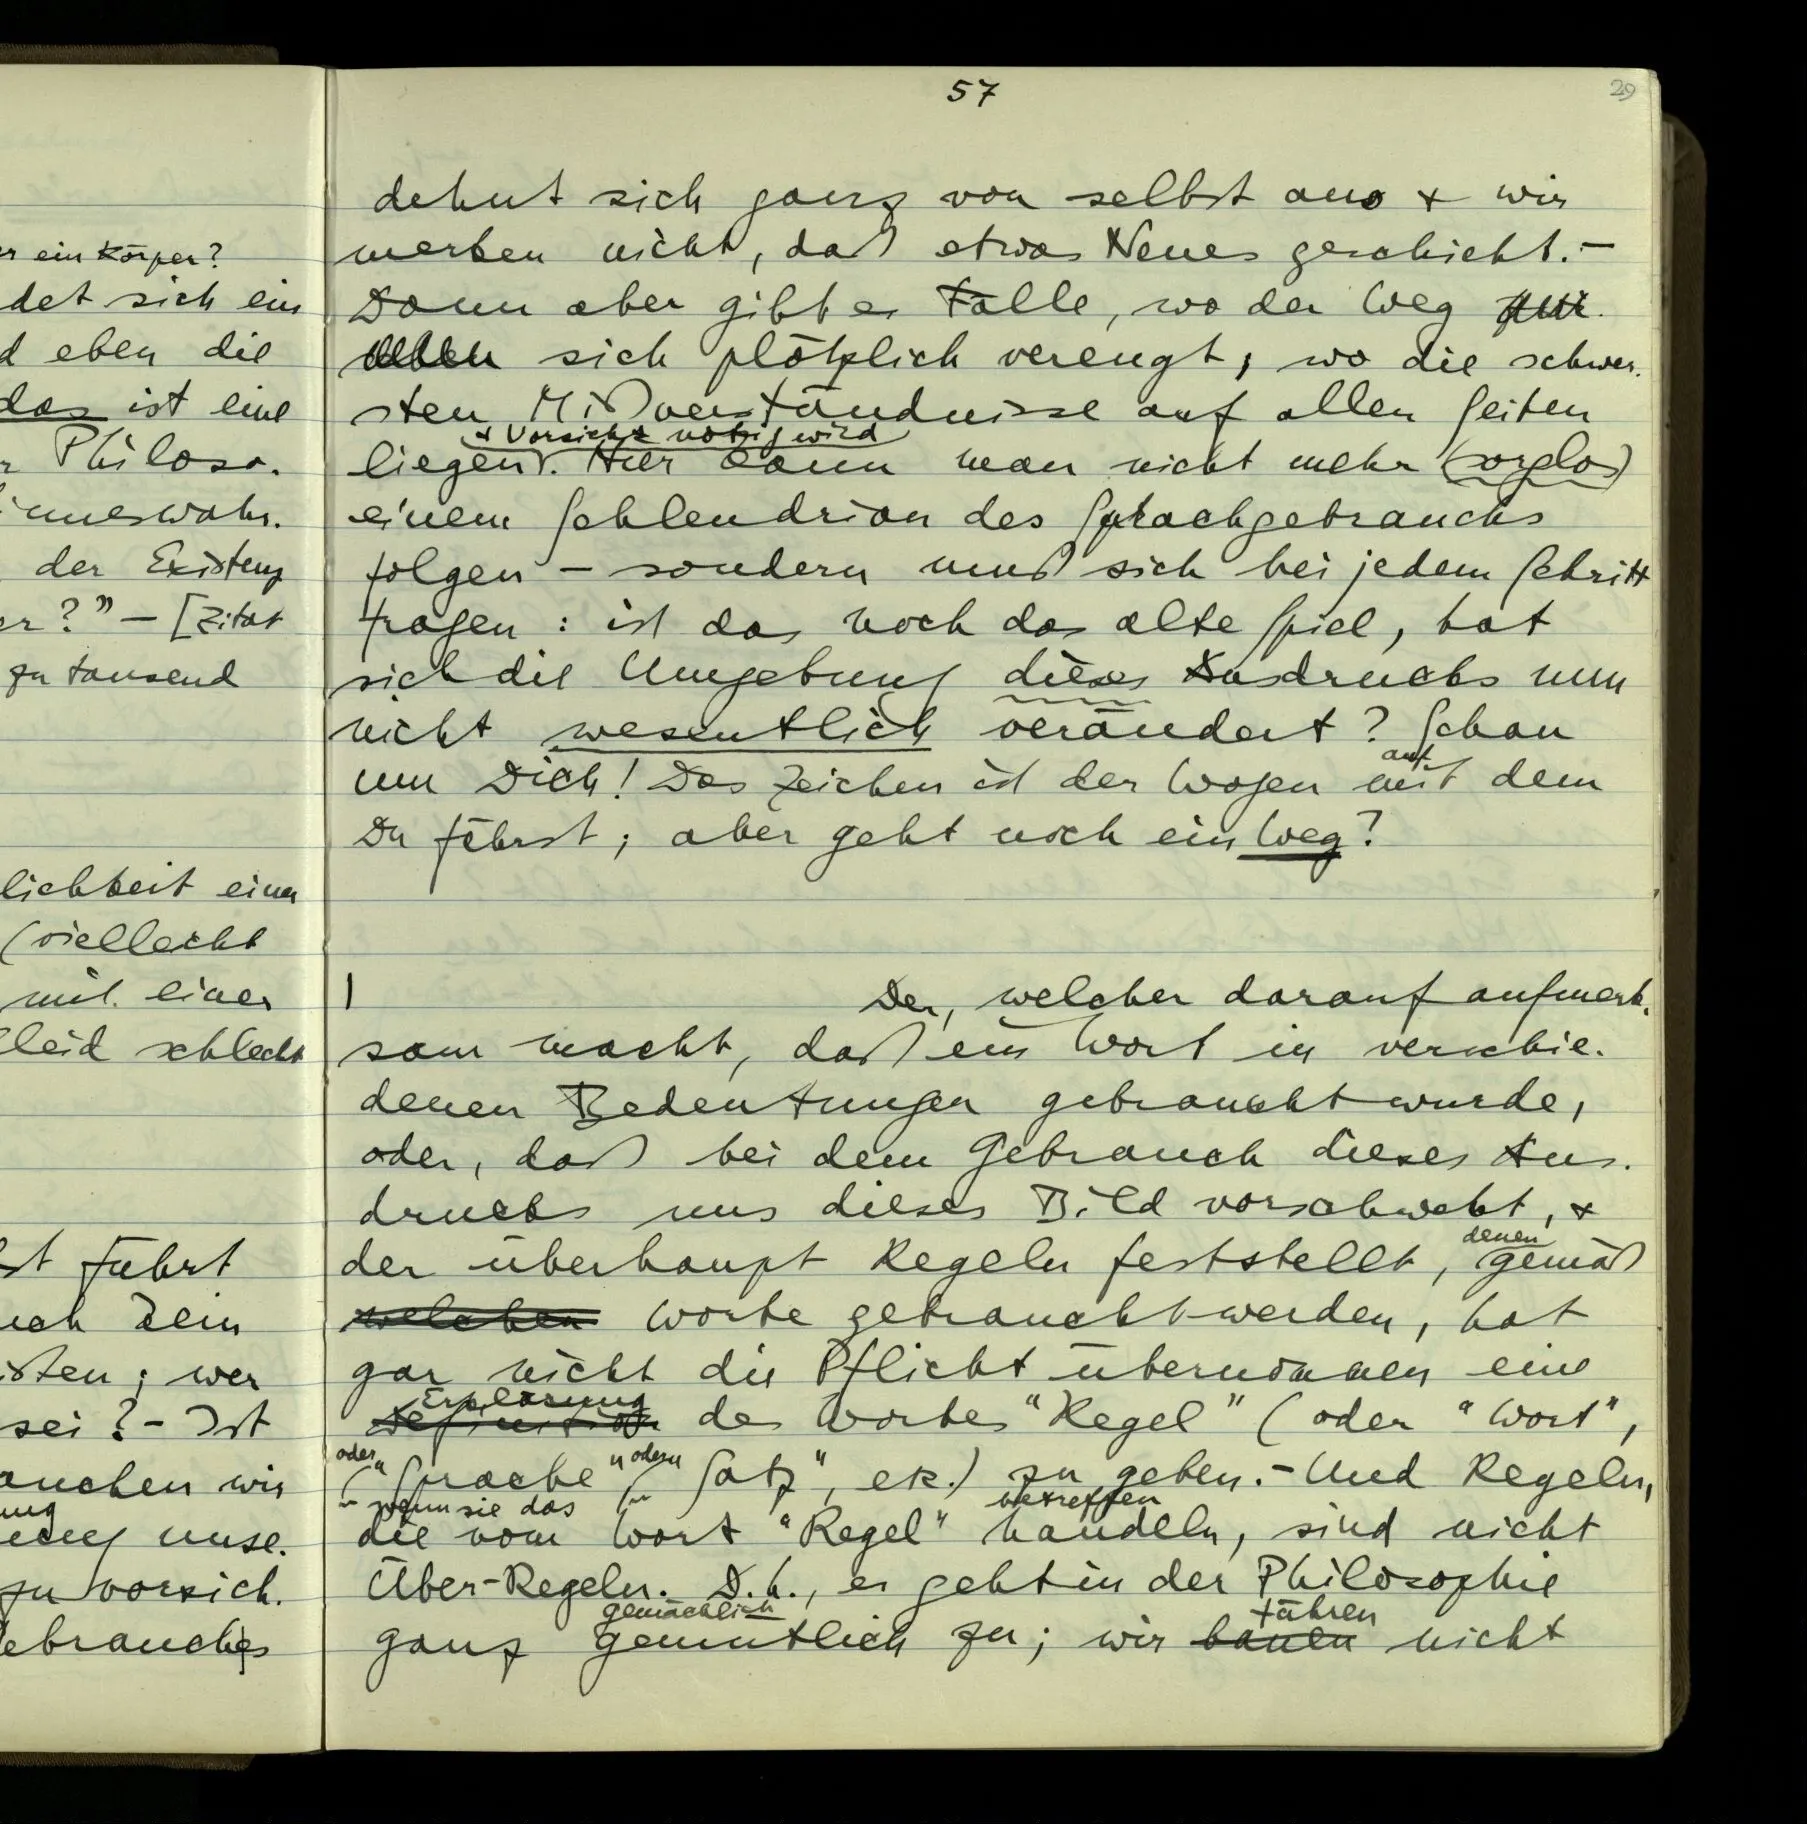 57
29
dehnt sich ganz von selbst aus & wir
merken nicht, daß etwas Neues geschieht. –
Dann aber gibt es Fälle, wo der Weg
sich plötzlich verengt, wo die schwer-
sten Mißverständnisse auf allen Seiten
& Vorsicht nötig wird
liegen. Hier kann man nicht mehr (sorglos)
einem Schlendrian des Sprachgebrauchs
folgen – sondern muß sich bei jedem Schritt
fragen: ist das noch das alte Spiel, hat
sich die Umgebung dieses Ausdrucks nun
nicht wesentlich verändert? Schau
auf
um Dich! Das Zeichen ist der Wagen mit dem
Du fährst; aber geht noch ein Weg?
| Der, welcher darauf aufmerk-
sam macht, daß ein Wort in verschie-
denen Bedeutungen gebraucht wurde,
oder, daß bei dem Gebrauch dieses Aus-
drucks uns dieses Bild vorschwebt, &
denen
der überhaupt Regeln feststellt, gemäß
welchen Worte gebraucht werden, hat
gar nicht die Pflicht übernommen eine
Erklärung
Definition des Wortes "Regel" (oder "Wort",
oder oder
"Sprache", "Satz", etc.) zu geben. – Und Regeln,
wenn sie das betreffen
die vom Wort "Regel" handeln, sind nicht
Über-Regeln. D.h., es geht in der Philosophie
gemächlich führen
ganz gemütlich zu; wir bauen nicht
er ein Körper?
det sich ein
d eben die
das ist eine
r Philoso-
inneswahr-
der Existenz
er?" – [Zitat
zu tausend
lichkeit einer
(vielleicht
mit einer
leid schlecht
st führt
uch Dein
isten; wer
sei? – Ist
auchen wir
ung
unse-
zu vorsich-
ebrauchs